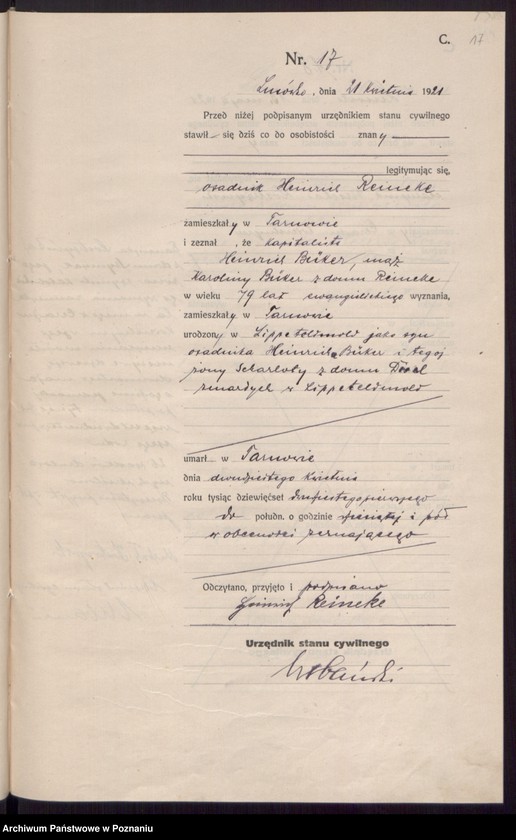 C.
17
Nr. 17
Lusówko, dnia 21 kwietnia 1921
Przed niżej podpisanym urzędnikiem stanu cywilnego
stawił się dziś co do osobistości znany
legitymując się,
osadnik Heinrich Reineke
zamieszkały w Tarnowie
i zeznał, że kapitalista
Heinrich Büker, mąż
Karoliny Büker z domu Reineke
w wieku 79 lat ewangielickiego wyznania,
zamieszkały w Tarnowie
urodzony w Lippe jako syn
osadnika Heinricha Büker i tegoż
żony z domu
zmarłych w Lippe
umarł w Tarnowie
dnia dwudziestego kwietnia
roku tysiąc dziewięćset dwudziestegopierwszego
do połudn. o godzinie i pół
w obecności zeznającego
Odczytano, przyjęto i podpisano
Heinrich Reineke
Urzędnik stanu cywilnego
Archiwum Państwowe w Poznaniu